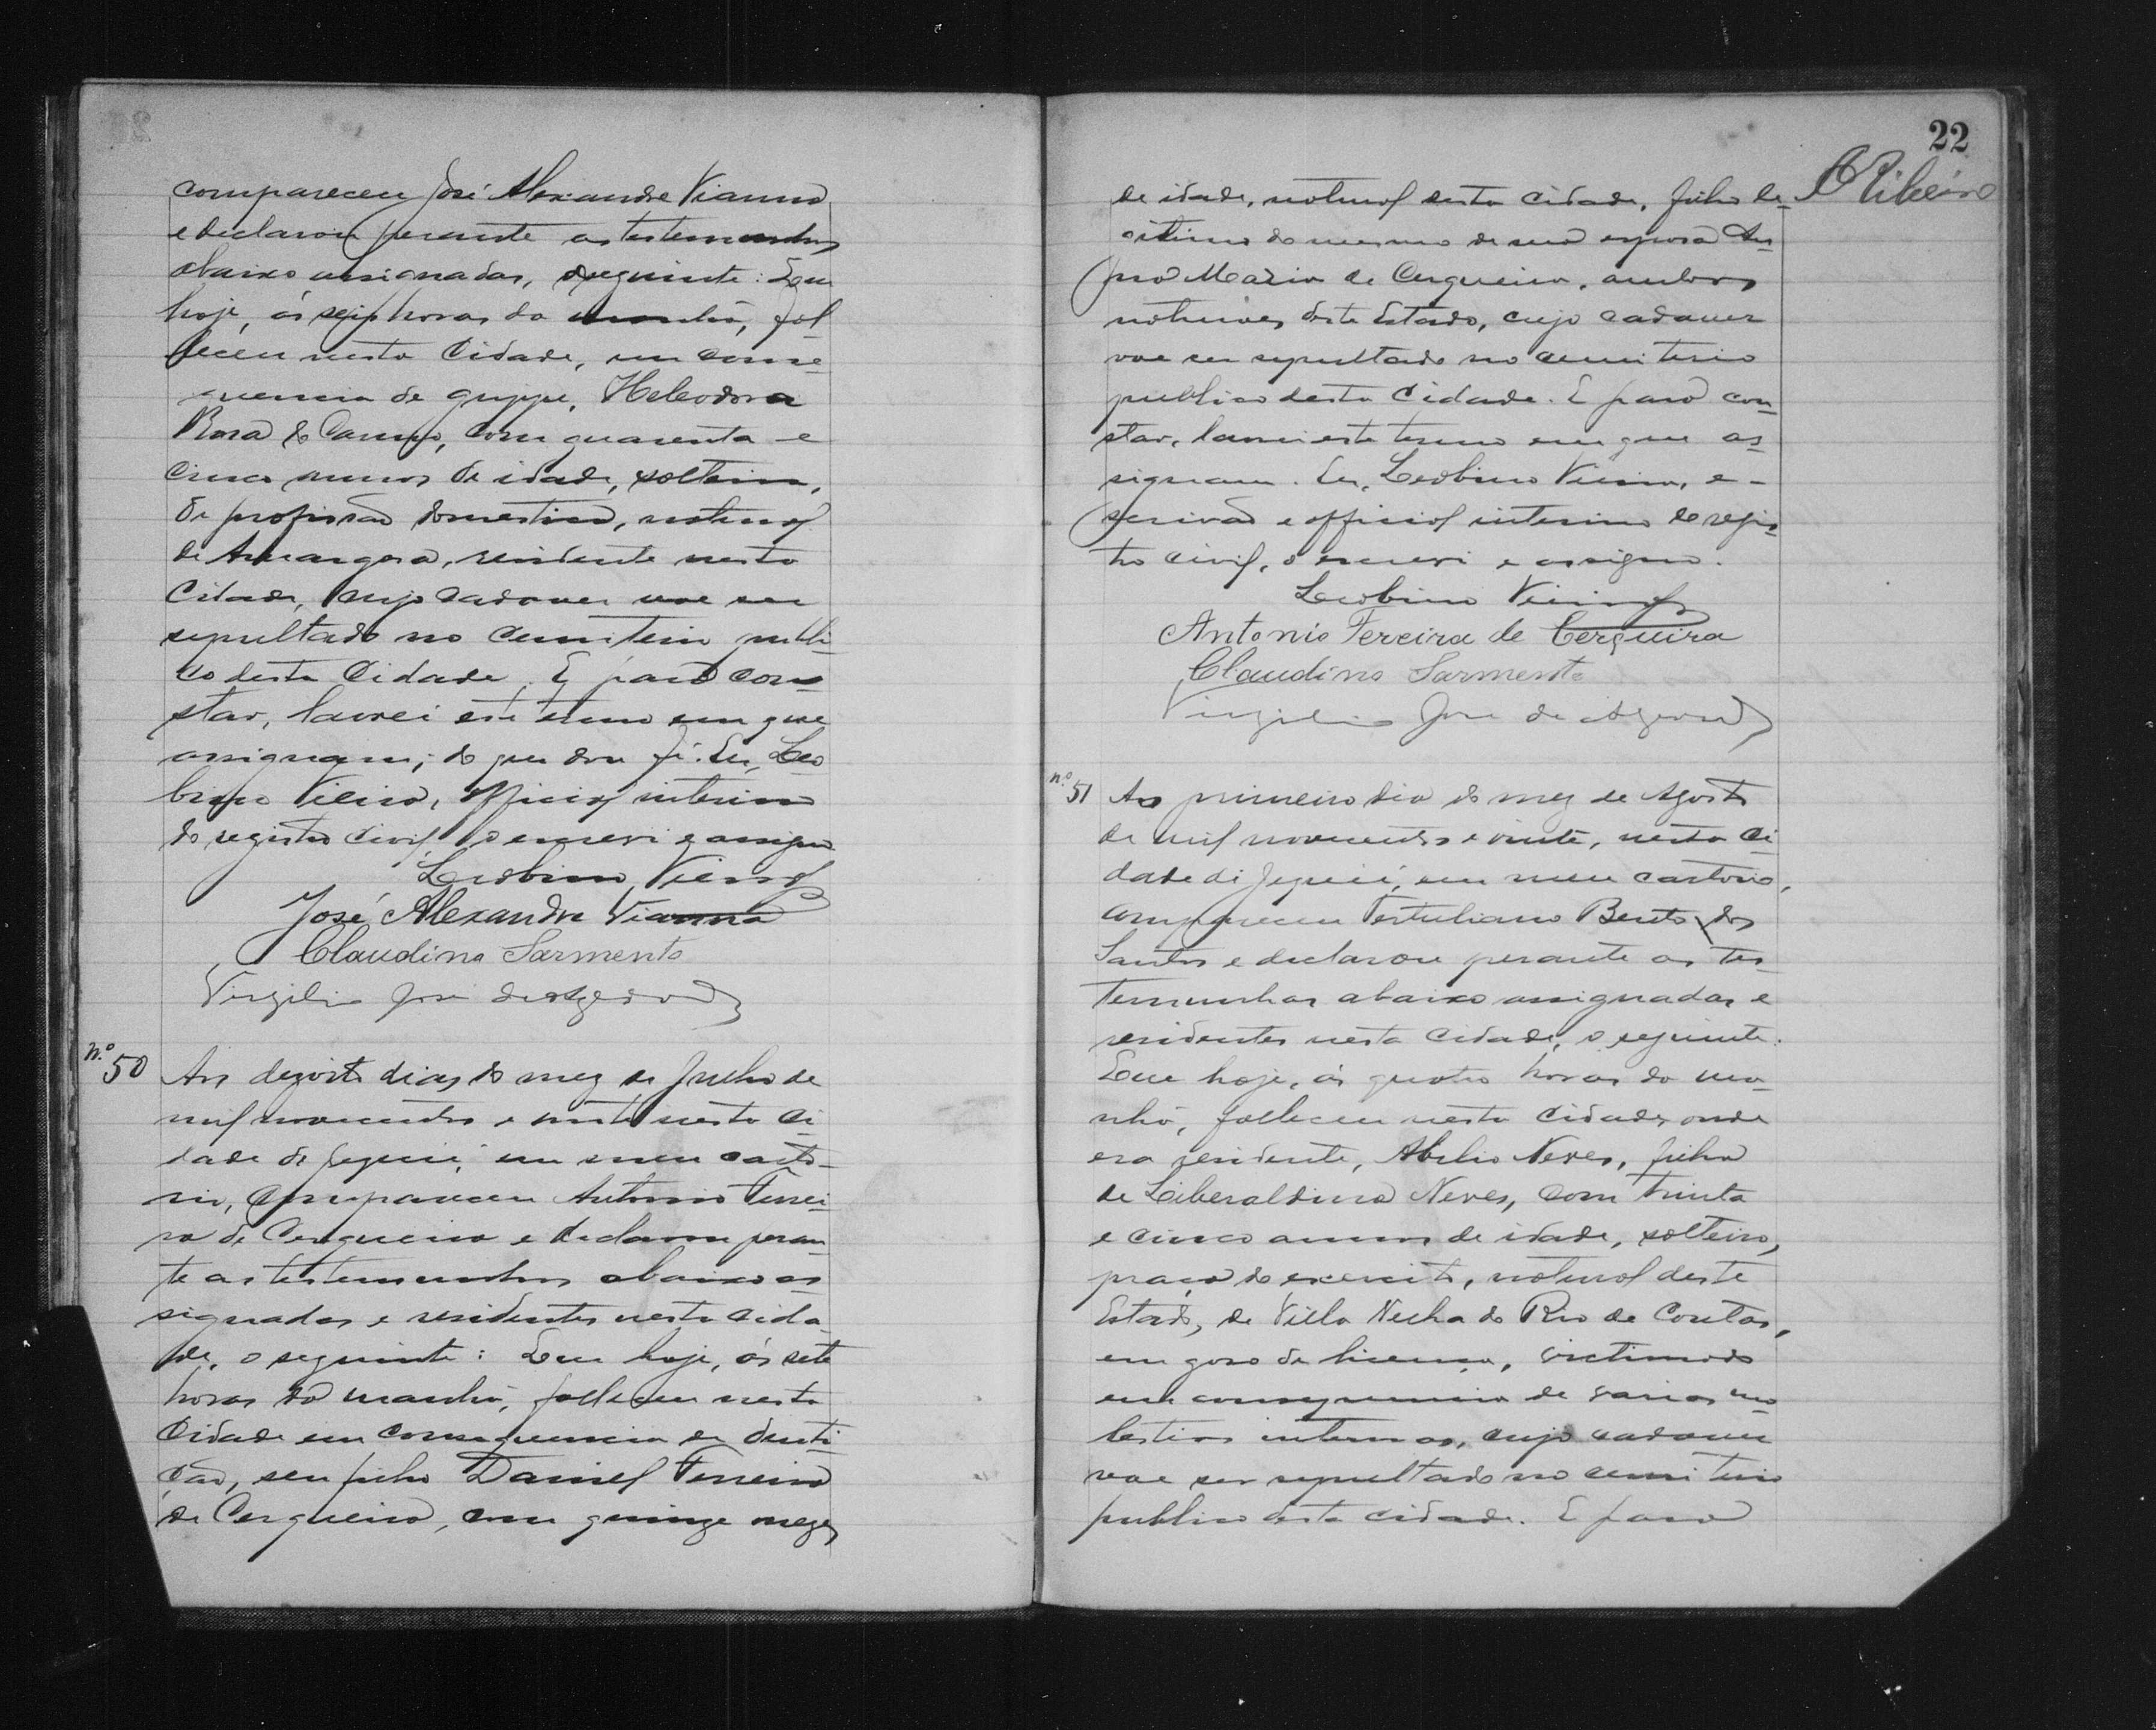 compareceu José Alexandre Vianna
e declarou perante as testemunhas
abaixo assignadas, o seguinte: Que
hoje, ás seis horas da manhã, fal
leceu nesta Cidade, em conse-
quencia de grippe, Heleodora
Rosa do Carmo, com quarenta e
cinco annos de idade, solteira,
de profissão domestica, natural
de Amargosa, residente nesta
Cidade, cujo cadaver vae ser
sepultado no cemiterio publi-
co desta Cidade. E para con-
star, lavrei este termo em que
assignam; do que dou fé. Eu, Leo
bino Vieira, official interino
do registro civil, o escrevi e assigno
Leobino Vieira
José Alexandre Vianna
Claudino Sarmento
Virgilio José de
n.º 50
Aos dezoito dias do mez de Julho de
mil novecentos e vinte nesta Ci
dade de Jequié, em meu carto-
rio, compareceu Antonio Ferrei-
ra de Cerqueira e declarou peran-
te as testemunhas abaixo as
signadas e residentes nesta cida-
de, o seguinte: Que hoje, ás sete
horas da manhã, falleceu nesta
Cidade em consequencia de denti
ção, seu filho Daniel Ferreira
de Cerqueira, com quinze mezes
22
ORibeiro
de idade, natural desta cidade, filho le-
gitimo do mesmo de sua esposa
Maria de Cerqueira, ambos
naturaes deste Estado, cujo cadaver
vae ser sepultado no cemiterio
publico desta Cidade. E para con-
star, lavrei este termo em que as
signam. Eu, Leobino Vieira, es-
crivão e official interino do regis-
tro civil, o escrevi e assigno.
Leobino Vieira
Antonio Fereira de Cerqueira
Claudino Sarmento
Virgilio José de
n.º 51
Ao primeiro dia do mez de Agosto
de mil novecentos e vinte, nesta Ci
dade de Jequié, em meu cartorio,
compareceu Tertuliano Bento dos
Santos e declarou perante as tes-
temunhas abaixo assignadas e
residentes nesta cidade, o seguinte:
Que hoje, ás quatro horas da ma-
nhã, falleceu nesta Cidade, onde
era residente, Abilio Neves, filho
de Liberaldina Neves, com trinta
e cinco annos de idade, solteiro,
praça do exercito, natural deste
Estado, de Villa Velha do Rio de Contas,
em goso de licença, victimado
em consequencia de varias mo
lestias internas, cujo cadaver
vae ser sepultado no cemiterio
publico desta cidade. E para